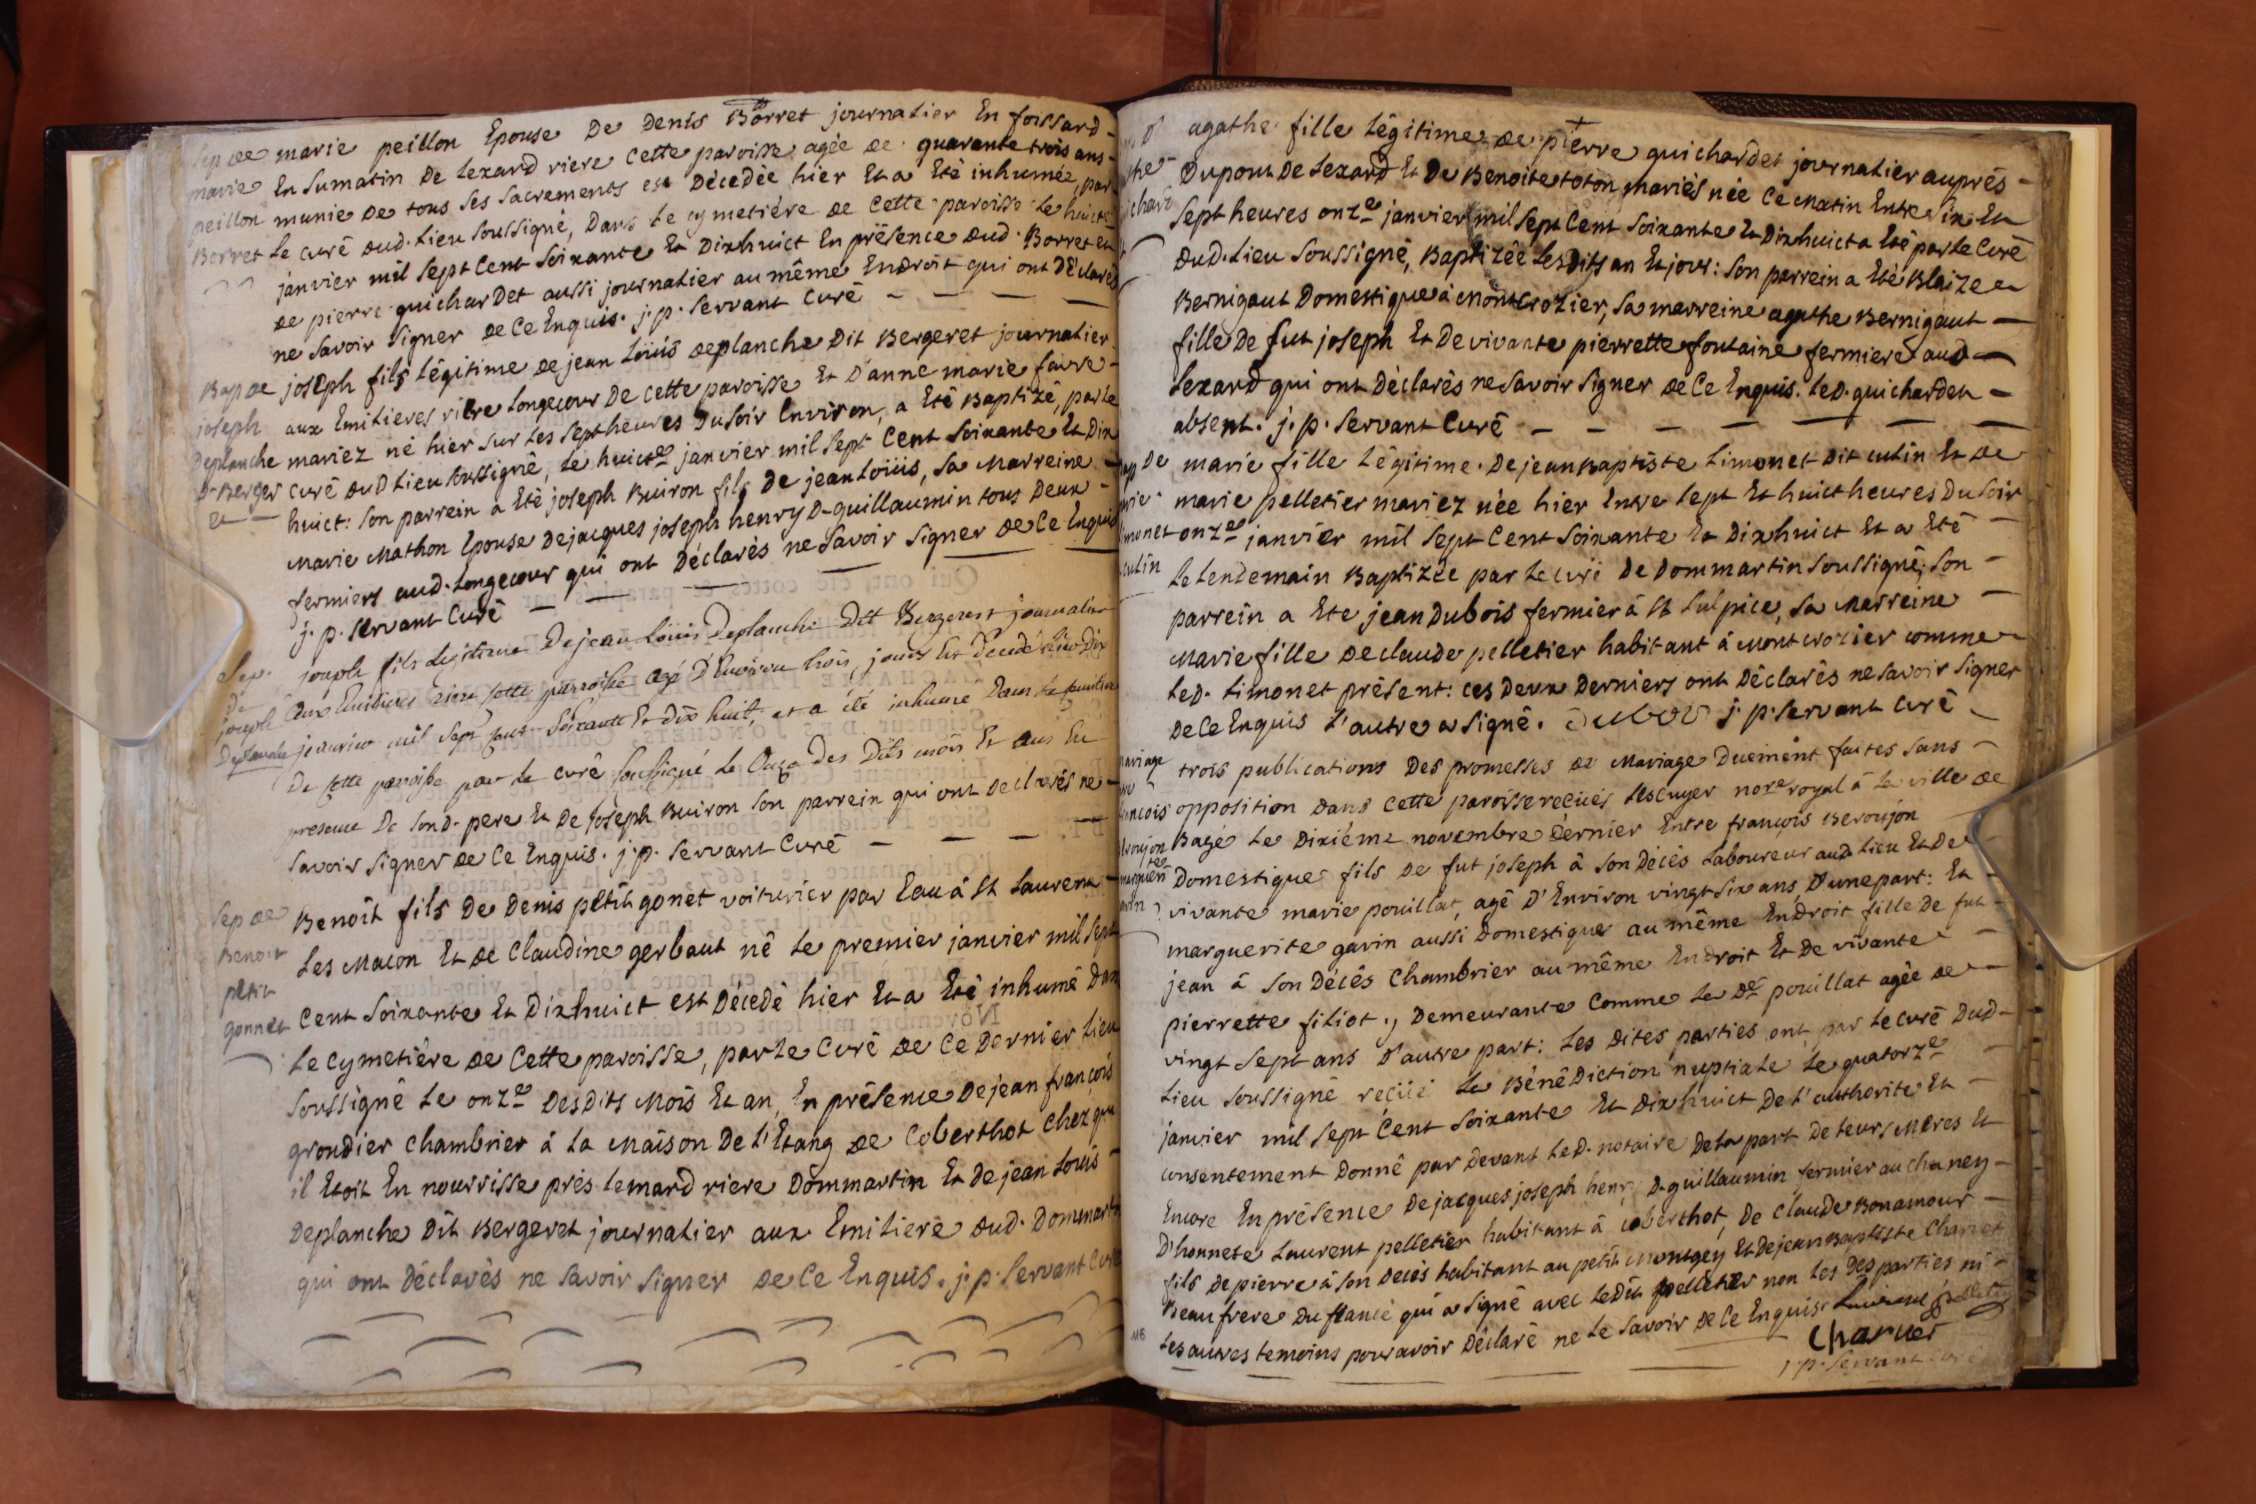 Sep de marie peillon Epouse De Denis Borret journalier En foissard
marie En Sumatin De Lexard riere Cette paroisse agée de quarante trois ans
peillon munie De tous ses sacrements est Décedée hier Et a Eté inhumée, par
Borret Le curé dud. Lieu soussigné, Dans Le cymetiére de Cette paroisse Le huicte
janvier mil sept Cent soixante Et Dixhuict En présence dud. Borret et
de pierre guichardet aussi journalier au même Endroit qui ont Déclarés
ne savoir signer de Ce Enquis. j. p. servant curé
Bap de joseph fils Légitime de jean Loüis deplanche Dit Bergeret journalier
joseph aux Emitieres riere Longecour De cette paroisse Et D'anne marie favre
Deplanche mariez né hier sur Les sept heures Du soir Environ, a Eté Baptizé, par le
D. Berger curé dud Lieu soussigné, Le huicte janvier mil sept Cent soixante Et Dix
et huict: son parrein a Eté joseph Buiron fils De jean Loüis, sa Marreine
Marie Mathon Epouse Dejacques joseph henry D. guillaumin tous Deux
fermiers aud. Longecour qui ont Déclarés ne savoir signer de Ce Enquis
j. p. servant Curé
Sep. joseph fils Legitime De jean Loüis Deplanche Dit Bergeret journalier
de aux Emitieres riere cette parroisse agé D'Environ trois jours Est Decedé hier Dix
joseph
Deplanche janvier mil sept cent soixante Et dix huit, et a été inhumé Dans le cimetiere
De cette paroisse par Le curé soussigné Le Onze Des Dits mois Et an En
presence De sond. pere Et De joseph Buiron son parrein qui ont declarés ne
savoir signer de Ce Enquis. j. p. servant Curé
Sep de Benoît fils De Denis petit gonet voiturier par Eau â St Laurent
Benoit
petit Les Macon Et de Claudine gerbaut né Le premier janvier mil sept
gonnet Cent soixante Et Dixhuict est Décedé hier Et a Eté inhumé Dans
Le Cymetiére de Cette paroisse, par Le Curé de Ce Dernier Lieu
soussigné Le onze Des Dits Mois Et an, En présence De jean françois
grondier chambrier â La Maison De L'Etang de Coberthot Chez qui
il Etoit En nourrisse prés Lemard riere Dommartin Et de jean Louis
Deplanche Dit Bergeret journalier aux Emitiere dud. Dommartin
qui ont Déclarés ne savoir signer de Ce Enquis. j. p. servant curé
agathe fille Légitime de pierre guichardet journalier auprés
Dupont De Lexard Et De Benoite toton mariés née Ce Matin Entre six Et
sept heures onze janvier mil sept Cent soixante Et Dixhuict a Eté par Le Curé
dud. Lieu soussigné, Baptizée Les Dits an Et jour: son parrein a Eté Blaize
Bernigaut Domestique â Montcrozier, sa marreine agathe Bernigaut
fille De fut joseph Et De vivante pierrette fontaine fermiere aud
Lexard qui ont Déclarés ne savoir signer de Ce Enquis. Led. guichardet
absent. j. p. servant Curé
Bap De marie fille Légitime De jean Baptiste Limonet Dit culin Et de
marie marie pelletier mariez née hier Entre sept Et huict heures Du soir
Limonet onze janvier mil sept Cent soixante Et Dixhuict Et a Eté
culin Le Lendemain Baptizée par Le curé De Dommartin soussigné; son
parrein a Ete jean Dubois fermier â St sulpice, sa Marreine
Marie fille de claude pelletier habitant â Montcrozier comme
Led. Limonet présent: ces Deux Derniers ont Déclarés ne savoir signer
De Ce Enquis L'autre a signé. Dubois j. p. servant Curé
mariage trois publications Des promesses de Mariage Duement faites sans
françois opposition dans Cette paroisse reçües Lescuyer nore royal â La ville de
Beroujon Bagé Le Dixiéme novembre Dernier Entre françois Beroujon
marguerite Domestique fils De fut joseph â son Décés Laboureur aud. Lieu Et De
gavin vivante marie pouillat, agé D'Environ vingt six ans, D'une part: Et
marguerite gavin aussi Domestique au même Endroit fille De fut
jean â son Décés Chambrier au même Endroit Et De vivante
pierrette filiot y Demeurante Comme La de pouillat agée de
vingt sept ans d'autre part: Les Dites parties ont par Le Curé Dud.
Lieu soussigné reçüe La Bénédiction nuptiale Le quatorze
janvier mil sept Cent soixante Et Dixhuict De L'authorite Et
consentement Donné par devant Led. notaire De La part de Leurs Meres Et
Encore En présence De jacques joseph henry D. guillaumin fermier au chaney
D'honnete Laurent pelletier habitant â coberthot, De claude Bonamour
fils De pierre â son Décés habitant au petit Montgey Et De jean Baptiste Charvet
Beaufrere Du fiancé qui a signé avec Ledit pelletier non Les Des parties ni
Les autres temoins pour avoir Déclaré ne Le savoir De Ce Enquis. Laurent pelletier
Charvet
j. p. servant curé